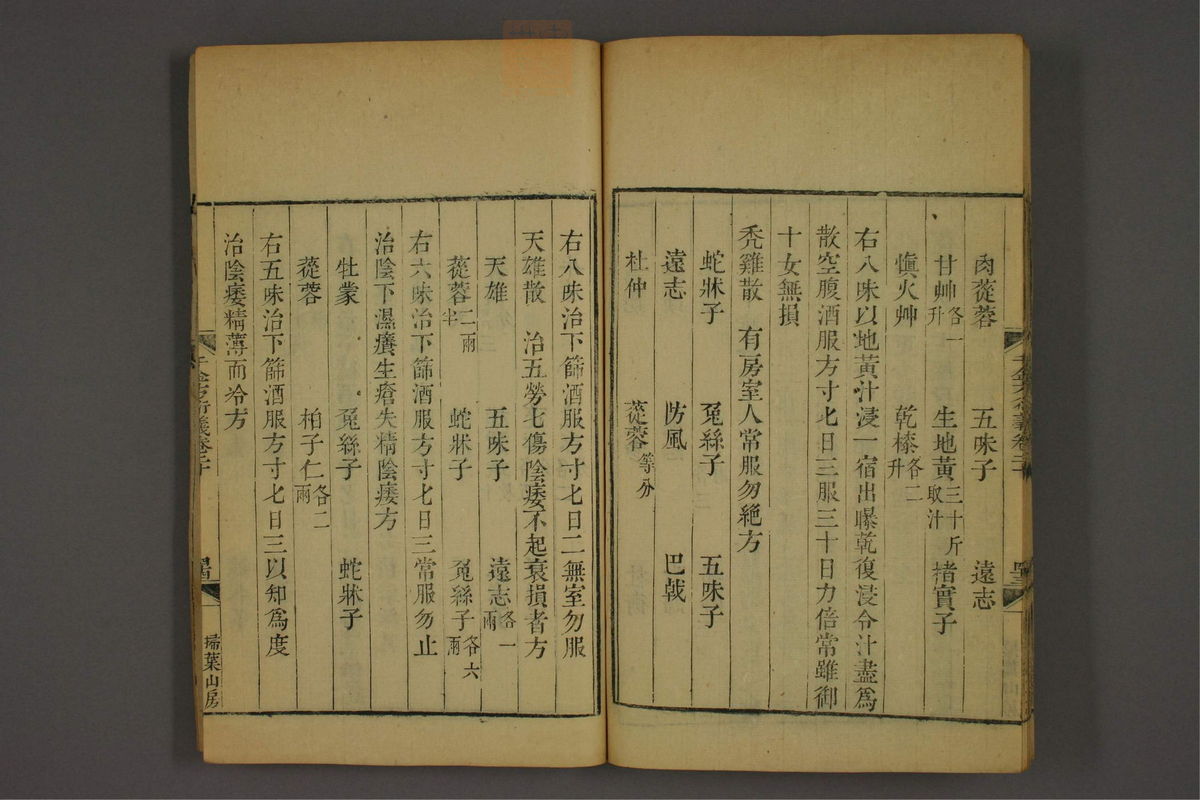 肉蓯蓉　五味子　遠志
甘艸各一升　生地黃三十斤取汁　楮實子
愼火艸　乾㯃各二升
右八味以地黃汁浸一宿出曝乾復浸令汁盡爲
散空腹酒服方寸匕日三服三十日力倍常雖御
十女無損
禿雞散　有房室人常服勿絕方
蛇牀子　菟絲子　五味子
遠志　防風　巴戟
杜仲　蓯蓉等分
右八味治下篩酒服方寸匕日二無室勿服
天雄散　治五勞七傷陰痿不起衰損者方
天雄　五味子　遠志各一兩
蓯蓉二兩半　蛇牀子　菟絲子各六兩
右六味治下篩酒服方寸匕日三常服勿止
治陰下濕癢生瘡失精陰痿方
牡蒙　菟絲子　蛇牀子
蓯蓉　柏子仁各二兩
右五味治下篩酒服方寸匕日三以知爲度
治陰痿精薄而冷方
千金方衍義卷二十
掃葉山房